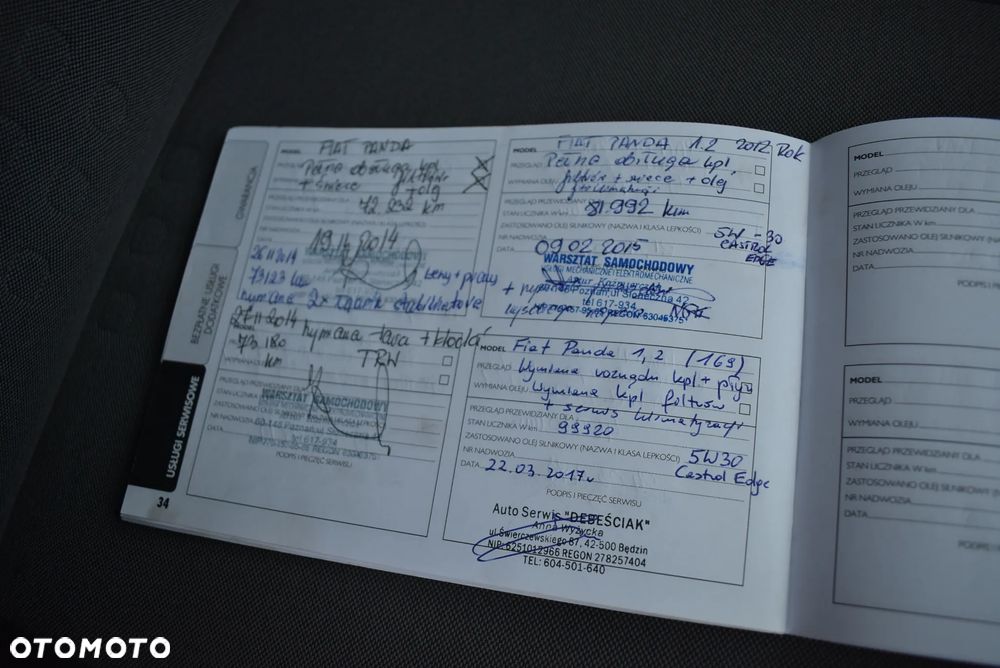 GWARANCJA
BEZPŁATNE USŁUGI
DODATKOWE
USŁUGI SERWISOWE
34
MODEL FIAT PANDA
Pełna obsługa kpl
+ świece filtrów
+ olej
72 232 km
19.11.2014
26.11.2014
73123 km
wymiana 2x łączniki stabilizatora
27.11.2014 wymiana tarcz + klocki
73 180
km
TRW
WARSZTAT SAMOCHODOWY
60-145 Poznań, ul. Słoneczna
tel 617-934
PODPIS I PIECZĘĆ SERWISU
MODEL FIAT PANDA 1.2 2012 Rok
PRZEGLĄD Pełna obsługa kpl
WYMIANA OLEJU filtrów + świece + olej
+ klimatyzacji
PRZEGLĄD PRZEWIDZIANY
STAN LICZNIKA W km 81.992 km
ZASTOSOWANO OLEJ SILNIKOWY (NAZWA I KLASA LEPKOŚCI) 5W-30
NR NADWOZIA CASTROL
EDGE
DATA 09.02 2015
WARSZTAT SAMOCHODOWY
MECHANICZNE I ELEKTROMECHANICZNE
Poznań, ul. Słoneczna 42
tel 617-934
REGON 63046375
MODEL Fiat Panda 1,2 (169)
PRZEGLĄD Wymiana rozrządu kpl + płyn
WYMIANA OLEJU Wymiana kpl filtrów
+ serwis klimatyzacji
PRZEGLĄD PRZEWIDZIANY DLA
STAN LICZNIKA W km 99920
ZASTOSOWANO OLEJ SILNIKOWY (NAZWA I KLASA LEPKOŚCI) 5W30
NR NADWOZIA Castrol Edge
DATA 22.03.2017r
PODPIS I PIECZĘĆ SERWISU
Auto Serwis "DEBEŚCIAK"
Anna Wyżycka
ul. Świerczewskiego 87, 42-500 Będzin
NIP: 6251012966 REGON 278257404
TEL: 604-501-640
MODEL
PRZEGLĄD
WYMIANA OLEJU
PRZEGLĄD PRZEWIDZIANY DLA
STAN LICZNIKA W km
ZASTOSOWANO OLEJ SILNIKOWY (N
NR NADWOZIA
DATA
PODPIS I P
MODEL
PRZEGLĄD
WYMIANA OLEJU
PRZEGLĄD PRZEWIDZIANY D
STAN LICZNIKA W km
ZASTOSOWANO OLEJ SILNIKOWY (N
NR NADWOZIA
DATA
PODPIS I
OTOMOTO